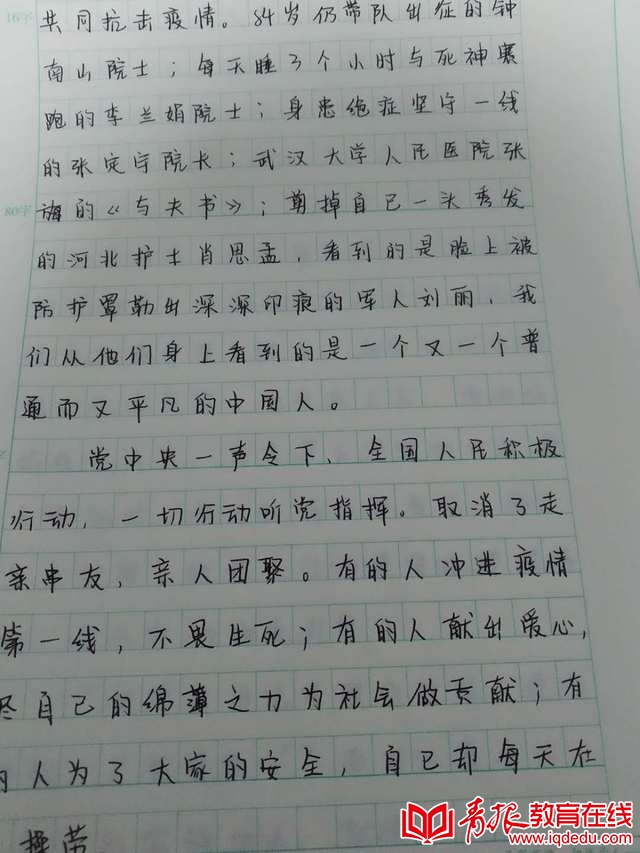 共同抗击疫情。84岁仍带队出征的钟
南山院士;每天睡3个小时与死神赛
跑的李兰娟院士;身患绝症坚守一线
的张定宇院长;武汉大学人民医院张
旃的《与夫书》;剪掉自己一头秀发
的河北护士肖思孟,看到的是脸上被
防护罩勒出深深印痕的军人刘丽,我
们从他们身上看到的是一个又一个普
通而又平凡的中国人。
党中央一声令下,全国人民积极
行动,一切行动听党指挥。取消了走
亲串友,亲人团聚。有的人冲进疫情
第一线,不畏生死;有的人献出爱心,
尽自己的绵薄之力为社会做贡献;有
的人为了大家的安全,自己却每天在
操劳
青报教育在线
www.iqdedu.com